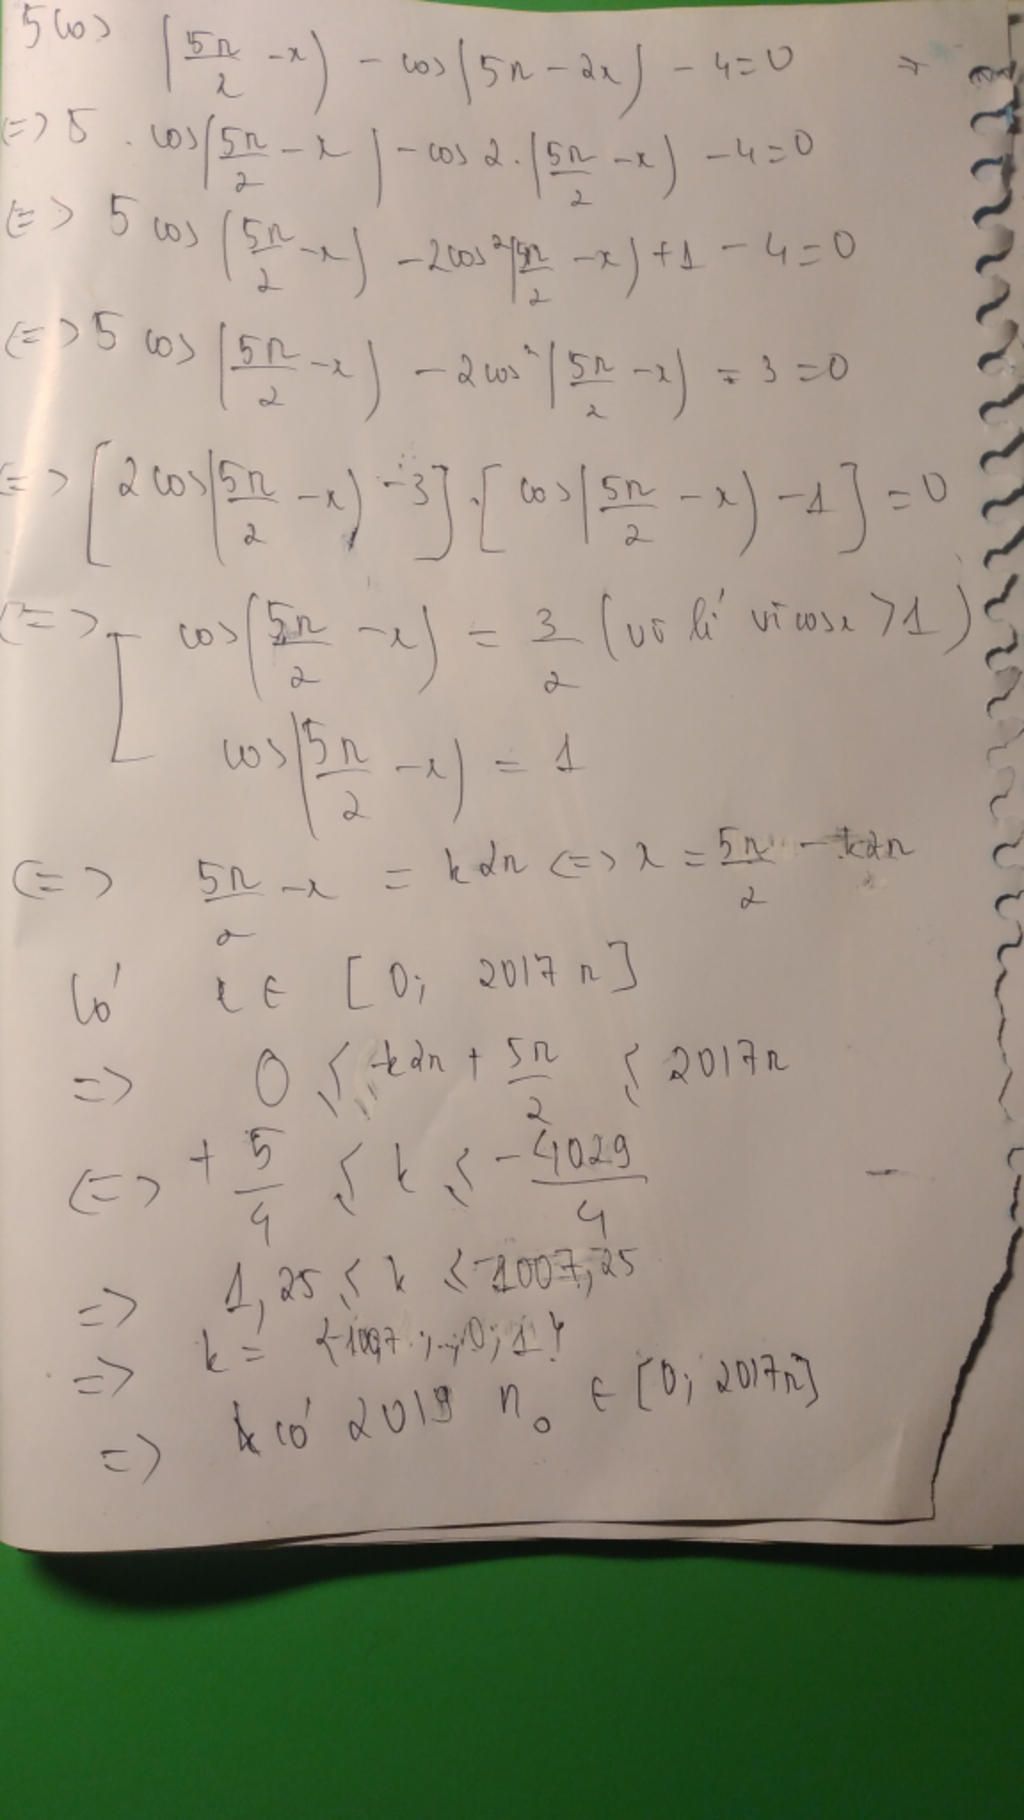 5cos (5π/2 - x) - cos(5π - 2x) - 4 = 0
<=> 5 . cos(5π/2 - x) - cos 2.(5π/2 - x) - 4 = 0
<=> 5 cos (5π/2 - x) - 2cos²(5π/2 - x) + 1 - 4 = 0
<=> 5 cos (5π/2 - x) - 2cos²(5π/2 - x) - 3 = 0
<=> [2cos(5π/2 - x) - 3].[cos(5π/2 - x) - 1] = 0
<=> [ cos(5π/2 - x) = 3/2 (vô lí vì cosx > 1)
cos(5π/2 - x) = 1
<=> 5π/2 - x = k2π <=> x = 5π/2 - k2π
Có x ∈ [0; 2017π]
=> 0 ≤ -k2π + 5π/2 ≤ 2017π
<=> + 5/4 ≤ k ≤ - 4029/4
=> 1,25 ≤ k ≤ -1007,25
=> k = {-1007;...;0;1}
=> có 2019 n0 ∈ [0; 2017π]